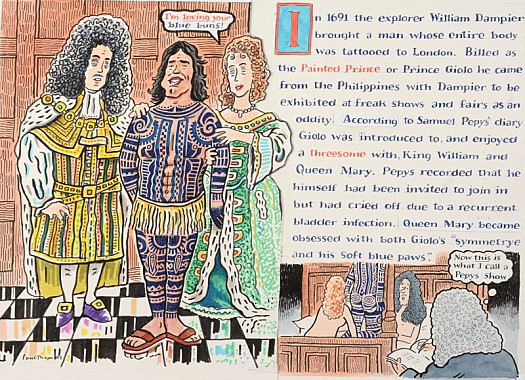 I'm loving your
blue buns!
In 1691 the explorer William Dampier
brought a man whose entire body
was tattooed to London. Billed as
the Painted Prince or Prince Giolo he came
from the Philippines with Dampier to be
exhibited at freak shows and fairs as an
oddity. According to Samuel Pepys' diary
Giolo was introduced to, and enjoyed
a threesome with, King William and
Queen Mary. Pepys recorded that he
himself had been invited to join in
but had cried off due to a recurrent
bladder infection. Queen Mary became
obsessed with both Giolo's "symmetrye
and his soft blue paws".
Now this is
what I call a
Pepys Show